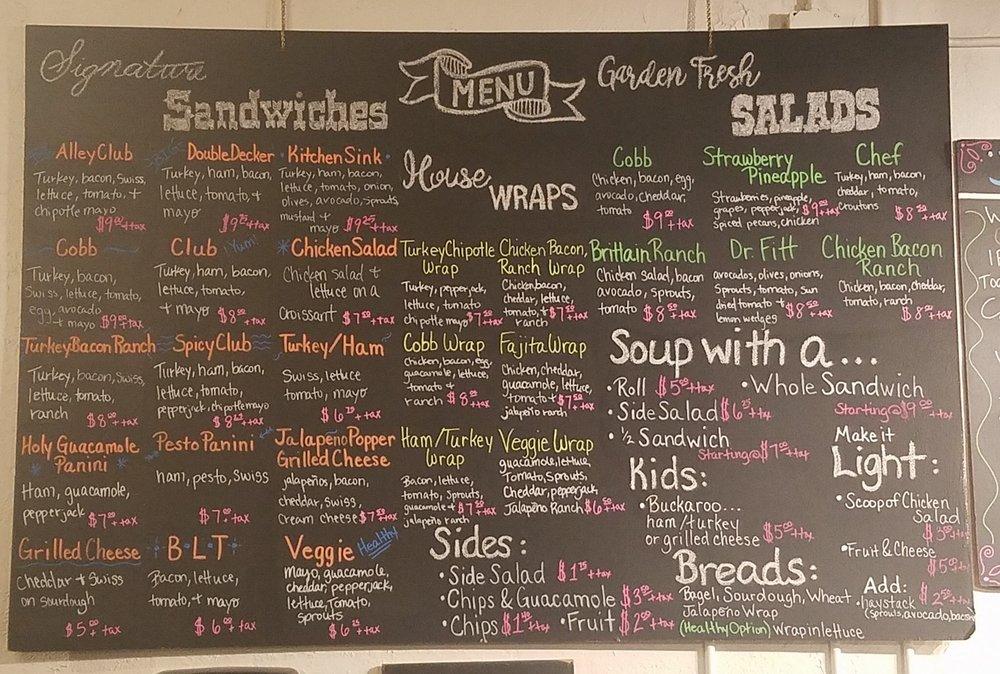 Signature
Sandwiches
Alley Club
Turkey, bacon, Swiss,
lettuce, tomato, +
chipotle mayo
Double Decker
Turkey, ham, bacon,
lettuce, tomato, +
mayo
$9.25+tax
Kitchen Sink
Turkey, ham, bacon,
lettuce, tomato, onion,
olives, avocado, sprouts,
mustard +
mayo $9.25+tax
Cobb
Turkey, bacon,
Swiss, lettuce, tomato,
egg, avocado
+ mayo
Club Yum!
Turkey, ham, bacon,
lettuce, tomato,
+ mayo
Chicken Salad
Chicken salad +
lettuce on a
Croissant
Turkey Bacon Ranch
Turkey, bacon, Swiss,
lettuce, tomato,
ranch
$8.00+tax
Spicy Club
Turkey, ham, bacon,
lettuce, tomato,
pepperjack, chipotle mayo
Turkey/Ham
Swiss, lettuce
tomato, mayo
$6.25+tax
Holy Guacamole
Panini
Ham, guacamole,
pepperjack
Pesto Panini
ham, pesto, Swiss
Jalapeño Popper
Grilled Cheese
jalapeños, bacon,
cheddar, swiss,
cream cheese
Grilled Cheese
Cheddar + Swiss
on sourdough
$5.00+tax
BLT
Bacon, lettuce,
tomato, + mayo
$6.00+tax
Veggie Healthy
Mayo, guacamole,
cheddar, pepperjack,
lettuce, tomato,
sprouts
$6.25+tax
MENU
House
WRAPS
Turkey Chipotle
Wrap
Turkey, pepperjack,
lettuce, tomato
chipotle mayo
Chicken Bacon
Ranch Wrap
Chicken, bacon,
cheddar, lettuce,
tomato, +
ranch
Cobb Wrap
Chicken, bacon, egg,
guacamole, lettuce,
tomato +
ranch
Fajita Wrap
Chicken, cheddar,
guacamole, lettuce,
tomato +
jalapeño ranch
Ham/Turkey
Wrap
Bacon, lettuce,
tomato, sprouts,
guacamole +
jalapeño ranch
Veggie Wrap
guacamole, lettuce,
Tomato, Sprouts,
Cheddar, pepperjack
Jalapeño Ranch
Sides:
• Side Salad
• Chips & Guacamole
• Chips • Fruit
Garden Fresh
SALADS
Cobb
Chicken, bacon, egg,
avocado, cheddar,
tomato
$9.00+tax
Strawberry
Pineapple
Strawberries, pineapple,
grapes, pepperjack,
spiced pecans, chicken
Chef
Turkey, ham, bacon,
cheddar, tomato,
croutons
Brittain Ranch
Chicken salad, bacon
avocado, sprouts,
tomato
Dr. Fitt
avocados, olives, onions,
Sprouts, tomato, sun
dried tomato +
lemon wedges
Chicken Bacon
Ranch
Chicken, bacon, cheddar,
tomato, ranch
Soup with a...
• Roll
• Side Salad $6.25+tax
• ½ Sandwich
Starting@
• Whole Sandwich
Starting@
Kids:
• Buckaroo...
ham/turkey
or grilled cheese
Make it
Light:
• Scoop of Chicken
Salad
• Fruit & Cheese
Add:
• haystack
(sprouts, avocado,
Breads:
Bagel, Sourdough, Wheat,
Jalapeño Wrap
(Healthy Option) Wrap in lettuce